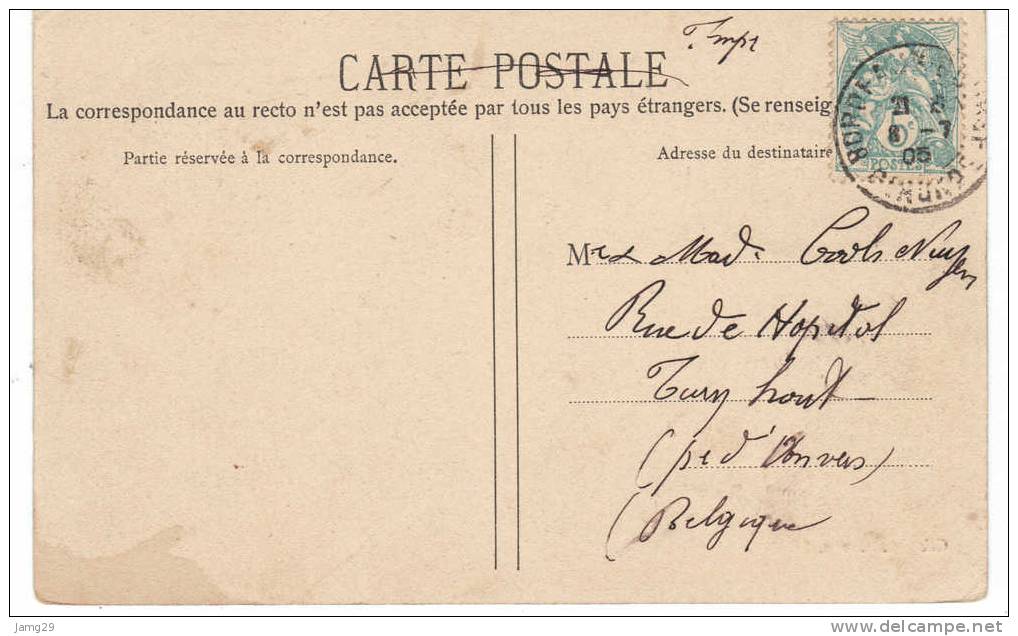 Impr
CARTE POSTALE
La correspondance au recto n'est pas acceptée par tous les pays étrangers. (Se renseig
Partie réservée à la correspondance.
Adresse du destinataire
BORDEAUX
GIRONDE
21
8 -7
05
5c
POSTES
Mr & Mad. Cools Nuyen
Rue de Hopital
Turnhout
(pr d'Anvers)
(Belgique
Jamg29
www.delcampe.net